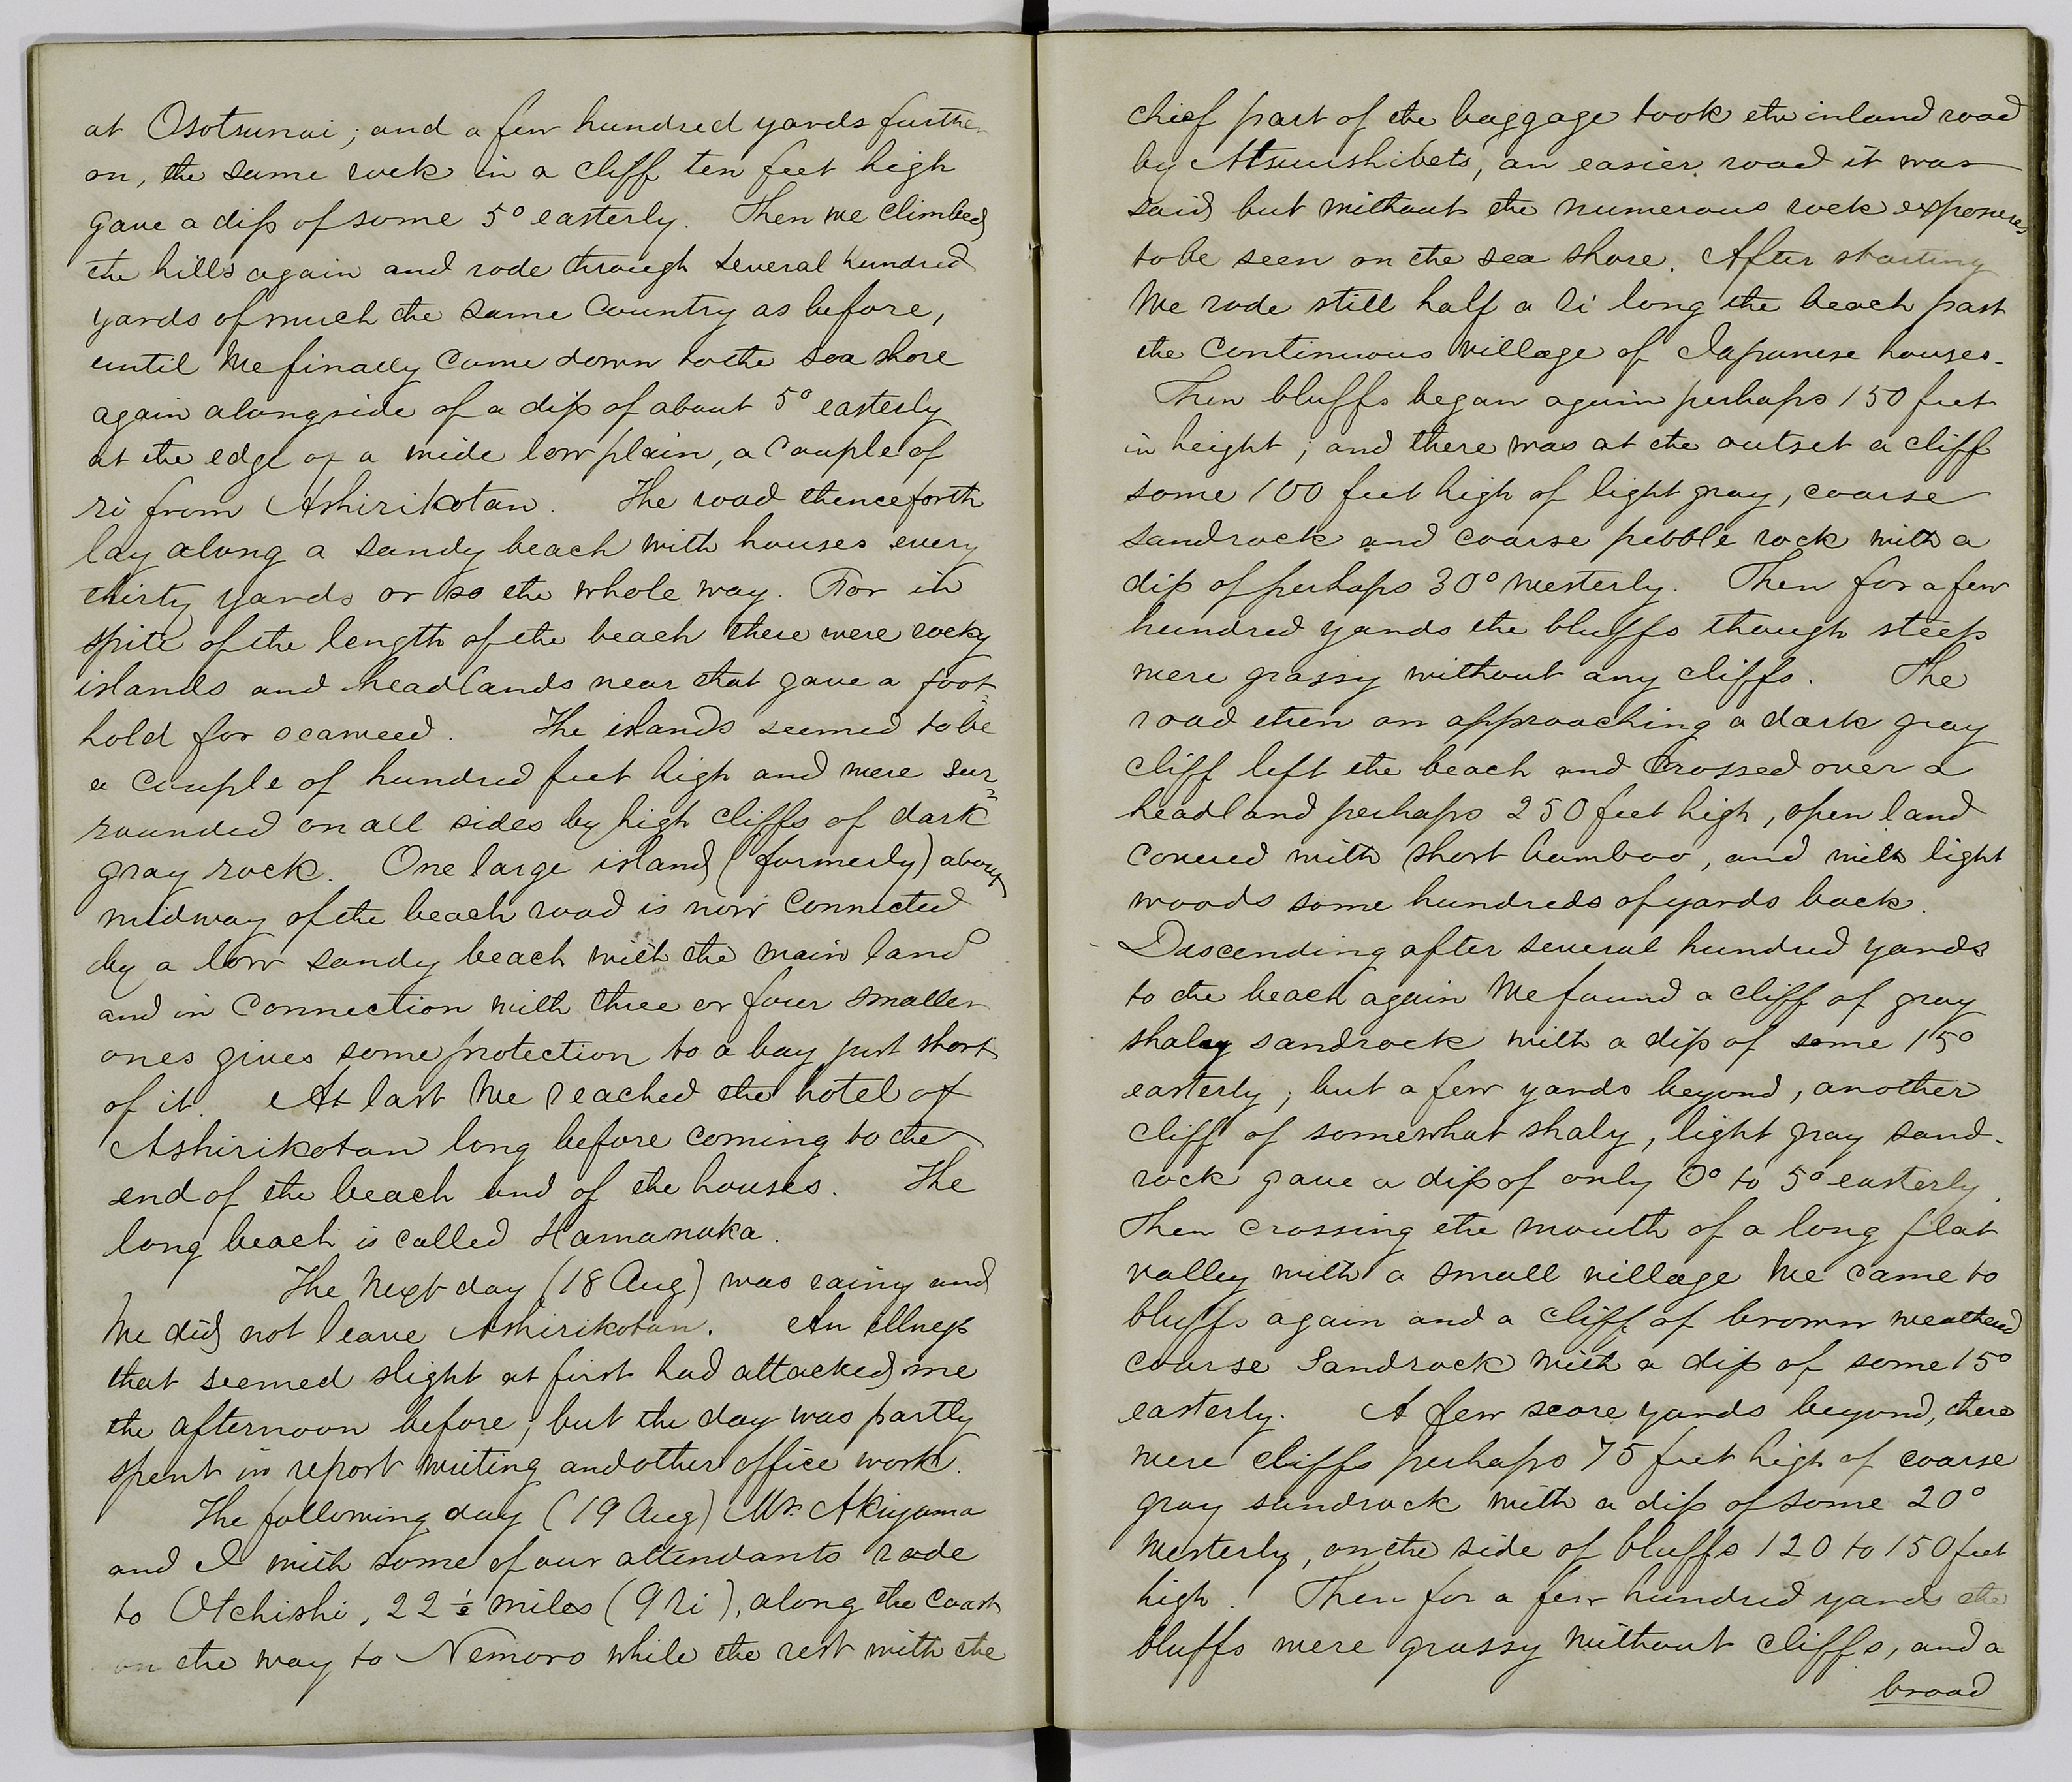 at Osotsunai; and a few hundred yards further
on, the same rock in a cliff ten feet high
gave a dip of some 5° easterly. Then we climbed
the hills again and rode through several hundred
yards of much the same country as before,
until we finally came down to the sea shore
again alongside of a dip of about 5° easterly
at the edge of a wide low plain, a couple of
ri from Ashirikotan. The road thenceforth
lay along a sandy beach with houses every
thirty yards or so the whole way. For in
spite of the length of the beach there were rocky
islands and headlands near that gave a foot-
hold for seaweed. The islands seemed to be
a couple of hundred feet high and were sur=
rounded on all sides by high cliffs of dark
gray rock. One large island (formerly) about
midway of the beach road is now connected
by a low sandy beach with the main land
and in connection with three or four smaller
ones gives some protection to a bay just short
of it. At last we reached the hotel of
Ashirikotan long before coming to the
end of the beach and of the houses. The
long beach is called Hamanaka.
The next day (18 Aug) was rainy and
we did not leave Ashirikotan. An illness
that seemed slight at first had attacked me
the afternoon before; but the day was partly
spent in report writing and other office work.
The following day (19 Aug) Mr. Akiyama
and I with some of our attendants rode
to Otchishi, 22 ½ miles (9 ri), along the coast
on the way to Nemoro while the rest with the
chief part of the baggage took the inland road
by Atsuushibets, an easier road it was
said but without the numerous rock exposures
to be seen on the sea shore. After starting
we rode still half a ri long the beach past
the continuous village of Japanese houses.
Then bluffs began again perhaps 150 feet
in height; and there was at the outset a cliff
some 100 feet high of light gray, coarse
sandrock and coarse pebble rock with a
dip of perhaps 30° westerly. Then for a few
hundred yards the bluffs though steep
were grassy without any cliffs. The
road then on approaching a dark gray
cliff left the beach and crossed over a
headland perhaps 250 feet high, open land
covered with short bamboo, and with light
woods some hundreds of yards back.
Descending after several hundred yards
to the beach again we found a cliff of gray
shaly sandrock with a dip of some 15°
easterly; but a few yards beyond, another
cliff of somewhat shaly, light gray sand-
rock gave a dip of only 0° to 5° easterly.
Then crossing the mouth of a long flat
valley with a small village we came to
bluffs again and a cliff of brown weathered
coarse sandrock with a dip of some 15°
easterly. A few score yards beyond, there
were cliffs perhaps 75 feet high of coarse
gray sandrock with a dip of some 20°
westerly, on the side of bluffs 120 to 150 feet
high. Then for a few hundred yards the
bluffs were grassy without cliffs, and a
broad